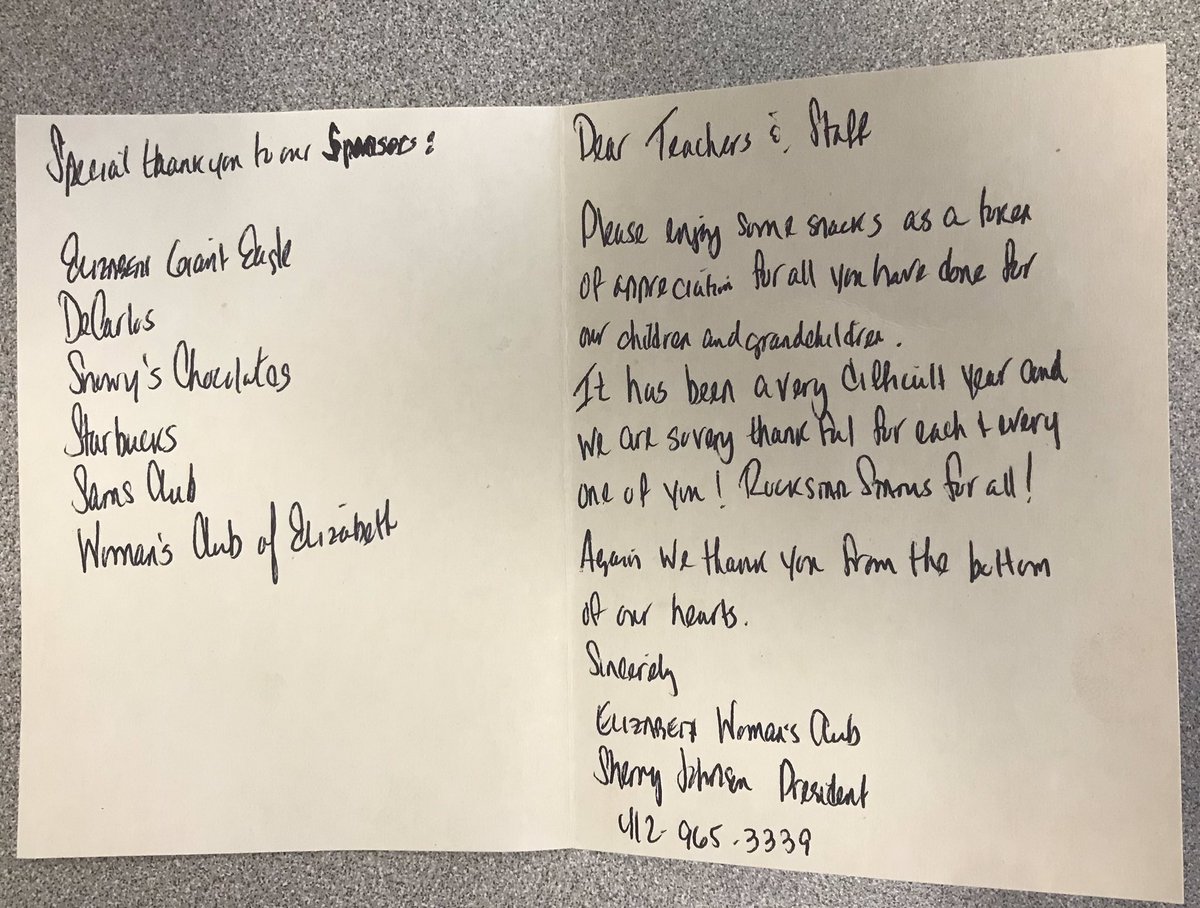 Special thank you to our Sponsors:
Elizabeth Giant Eagle
DeCarlos
Snowy's Chocolates
Starbucks
Sams Club
Woman's Club of Elizabeth
Dear Teachers & Staff
Please enjoy some snacks as a token
of appreciation for all you have done for
our children and grandchildren.
It has been a very difficult year and
we are so very thankful for each & every
one of you! Rockstar Status for all!
Again we thank you from the bottom
of our hearts.
Sincerely
Elizabeth Woman's Club
Sherry Johnson President
412-965-3339